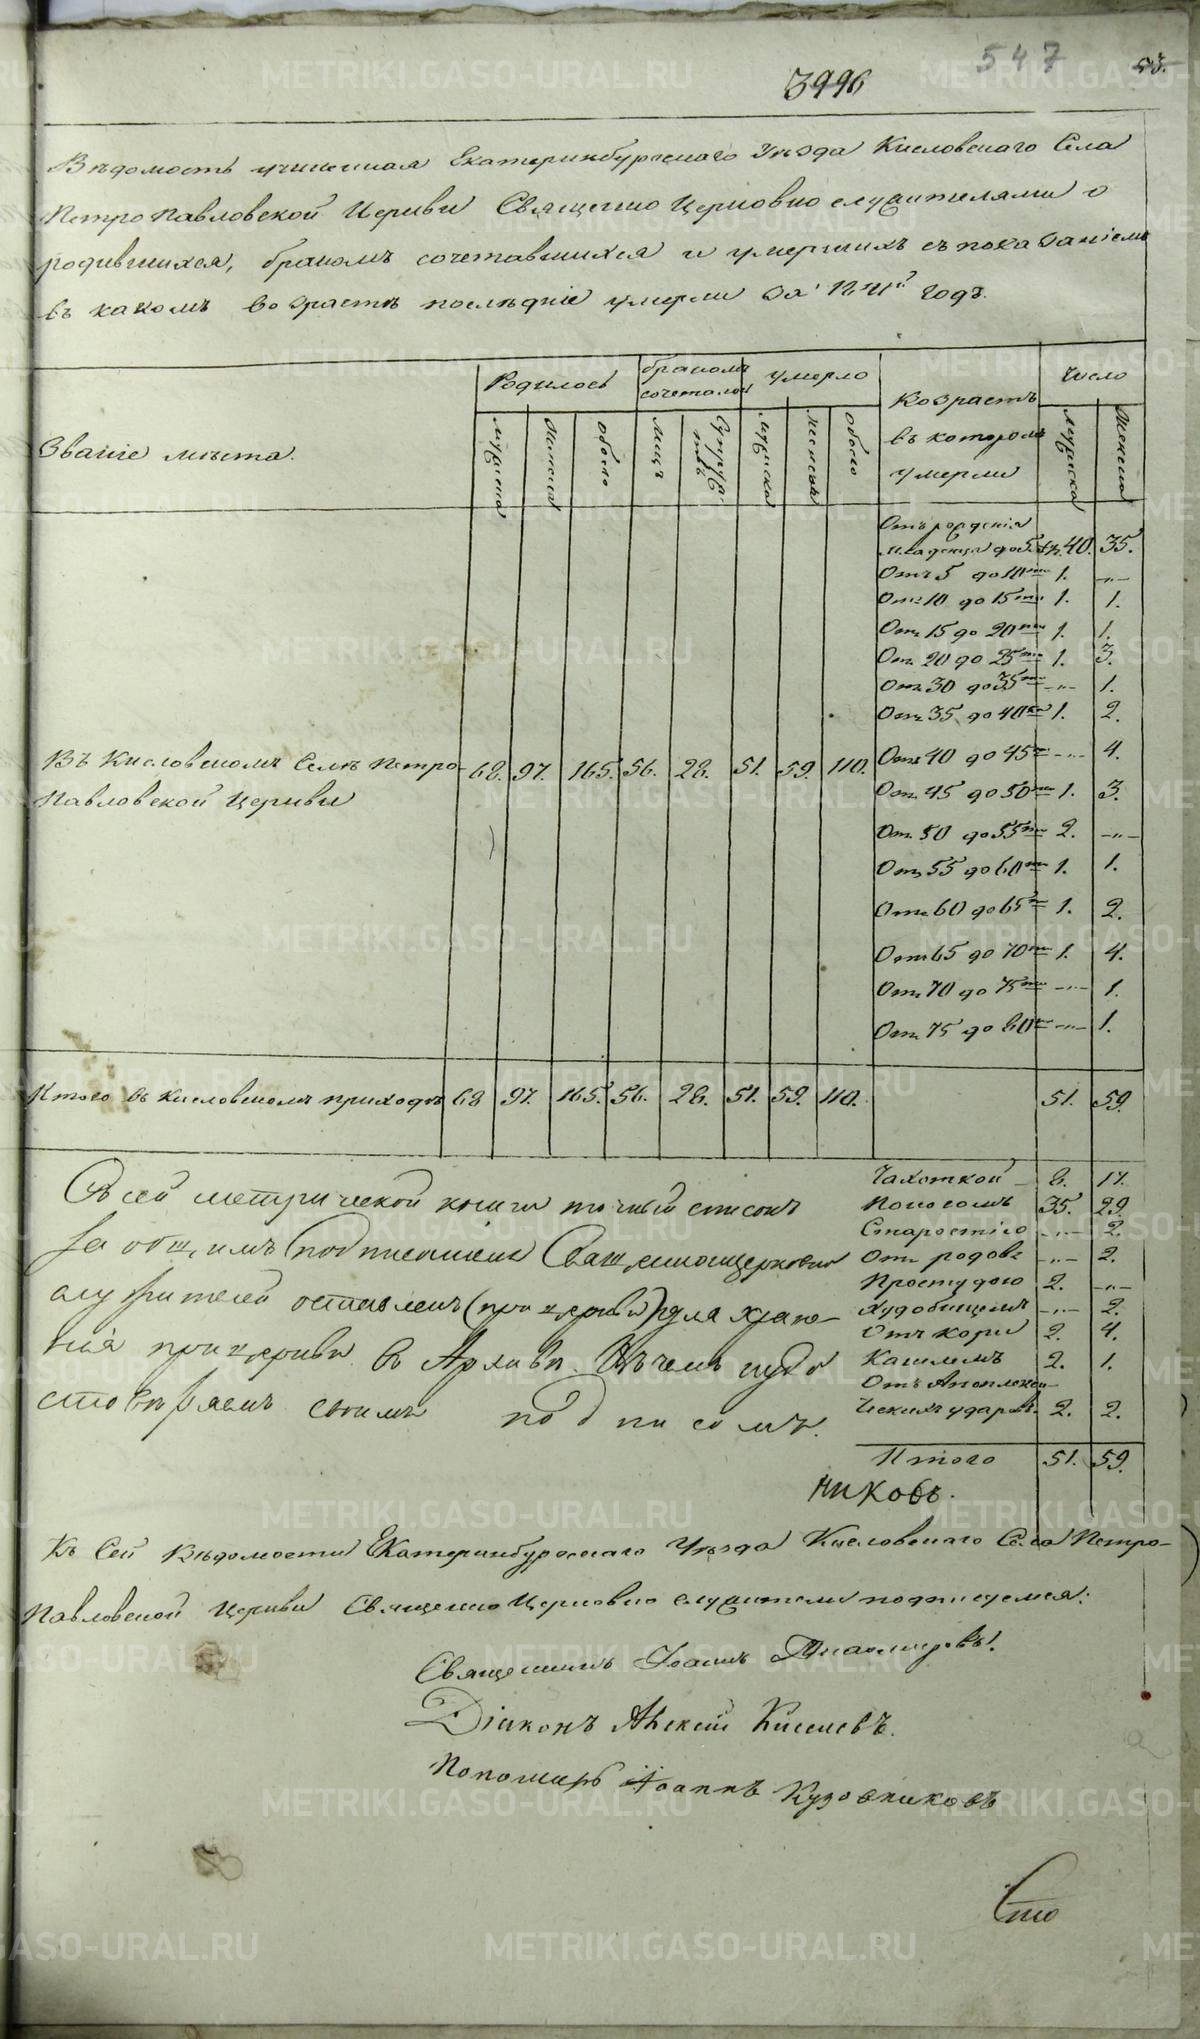 547
3996
Вѣдомость учиненная Екатеринбургскаго Уѣзда Кисловскаго Села
Петропавловской Церкви Священно Церковно служителями о
родившихся, бракомъ сочетавшихся и умершихъ съ показанiемъ
въ какомъ возрастѣ послѣднiе умерли за годъ.
Званiе мѣста.
Родилось
бракомъ сочеталось
умерло
Возрастъ въ которомъ умерли
Число
мужска
женска
обоего
лицъ
супружествъ
мужска
женска
обоего
мужска
женска
Отъ рожденiя
младенца до 5. лѣ. 40. 35.
Отъ 5 до 10ти 1. -„-
Отъ 10 до 15ти 1. 1.
Отъ 15 до 20ти 1. 1.
Отъ 20 до 25ти 1. 3.
Отъ 30 до 35ти -„- 1.
Отъ 35 до 40ка 1. 2.
Отъ 40 до 45ти -„- 4.
Отъ 45 до 50ти 1. 3.
Отъ 50 до 55ти 2. -„-
Отъ 55 до 60ти 1. 1.
Отъ 60 до 65ти 1. 2.
Отъ 65 до 70ти 1. 4.
Отъ 70 до 75ти -„- 1.
Отъ 75 до 80ти -„- 1.
Въ Кисловскомъ Селѣ Петро-
Павловской Церкви
68. 97. 165. 56. 28. 51. 59. 110.
Итого въ Кисловскомъ приходѣ 68 97. 165. 56. 28. 51. 59. 110. 51. 59.
Чахоткой 8. 17.
Поносомъ 35. 29.
Старостiю -„- 2.
Отъ родовъ -„- 2.
Простудою 2. -„-
Худобищемъ -„- 2.
Отъ кори 2. 4.
Кашлемъ 2. 1.
Отъ Апоплекси-
ческихъ ударовъ. 2. 2.
Итого 51. 59.
Съ сей метрической книги точный списокъ
за общимъ подписанiемъ Священноцерковно
служителей оставленъ (при церкви) для хране-
нiя при церкви въ Архивѣ. Въ чемъ и удо
стовѣряемъ своимъ подписомъ.
никовъ.
Къ Сей Вѣдомости Екатеринбургскаго Уѣзда Кисловскаго Села Петро-
Павловской Церкви Священно Церковно служители подписуемся:
Священникъ Iоаннъ
Дiаконъ Алексiй Киселевъ.
Пономарь Iоаннъ Кузовниковъ
METRIKI.GASO-URAL.RU